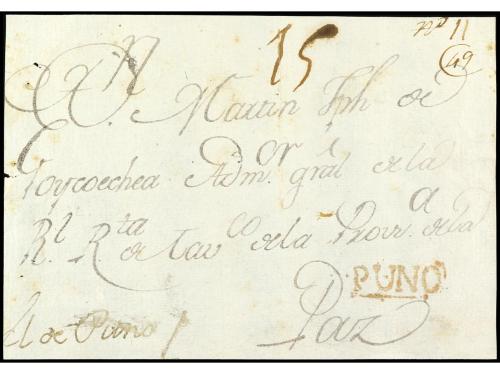 nº 11
49
15
Dn Martin Jph de
Goycoechea Admor gral de la
Rl Rta de Tavco de la Prova de la
Paz
PUNO
El de Puno